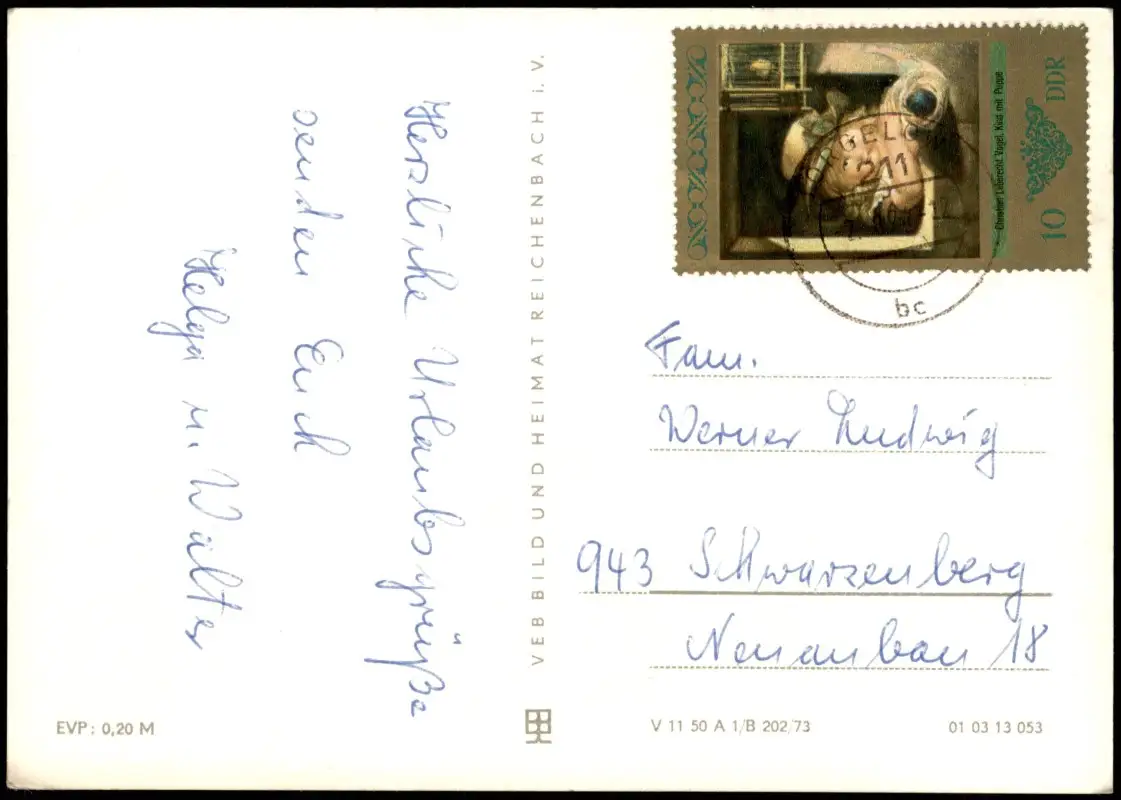 Herzliche Urlaubsgrüße
senden Euch
Helga u. Walter
VEB BILD UND HEIMAT REICHENBACH i. V.
10 DDR
Christian Leberecht Vogel, Kind mit Puppe
bc
Fam.
Werner Ludwig
943 Schwarzenberg
Neuanbau 18
EVP: 0,20 M
V 11 50 A 1/B 202/73
01 03 13 053